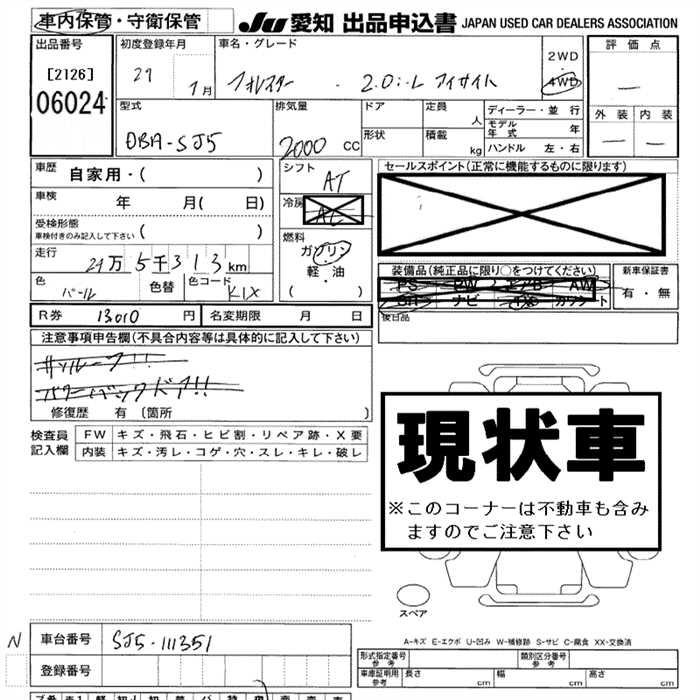 車内保管・守衛保管
JU 愛知 出品申込書 JAPAN USED CAR DEALERS ASSOCIATION
出品番号
[2126]
06024
初度登録年月
月
車名・グレード
フォレスター 2.0i-L アイサイト
2WD
4WD
評価点
外装 内装
型式
DBA-SJ5
排気量
2000 CC
ドア
形状
定員
人
積載
kg
ディーラー・並行
モデル年式 年
ハンドル 左・右
車歴
自家用・( )
車検
年 月( 日)
受検形態
車検付きのみ記入して下さい
( )
走行
万 5千313km
色
パール
色替
色コード
K1X
シフト
AT
冷房
AC
燃料
ガソリン
軽・油
( )
セールスポイント(正常に機能するものに限ります)
装備品(純正品に限り○をつけてください)
PS PW エアB AW
SR ナビ TV カワシート
新車保証書
有・無
後日品
R券 13010 円
名変期限 月 日
注意事項申告欄(不具合内容等は具体的に記入して下さい)
サンルーフ!!
パワーバックドア!!
修復歴 有 〔箇所 〕
検査員記入欄
FW キズ・飛石・ヒビ割・リペア跡・X要
内装 キズ・汚レ・コゲ・穴・スレ・キレ・破レ
現状車
※このコーナーは不動車も含み
ますのでご注意下さい
スペア
A-キズ E-エクボ U-凹み W-補修跡 S-サビ C-腐食 XX-交換済
N
車台番号 SJ5-111351
登録番号
形式指定番号
参考
類別区分番号
参考
車庫証明用
参考
長さ cm
幅 cm
高さ cm